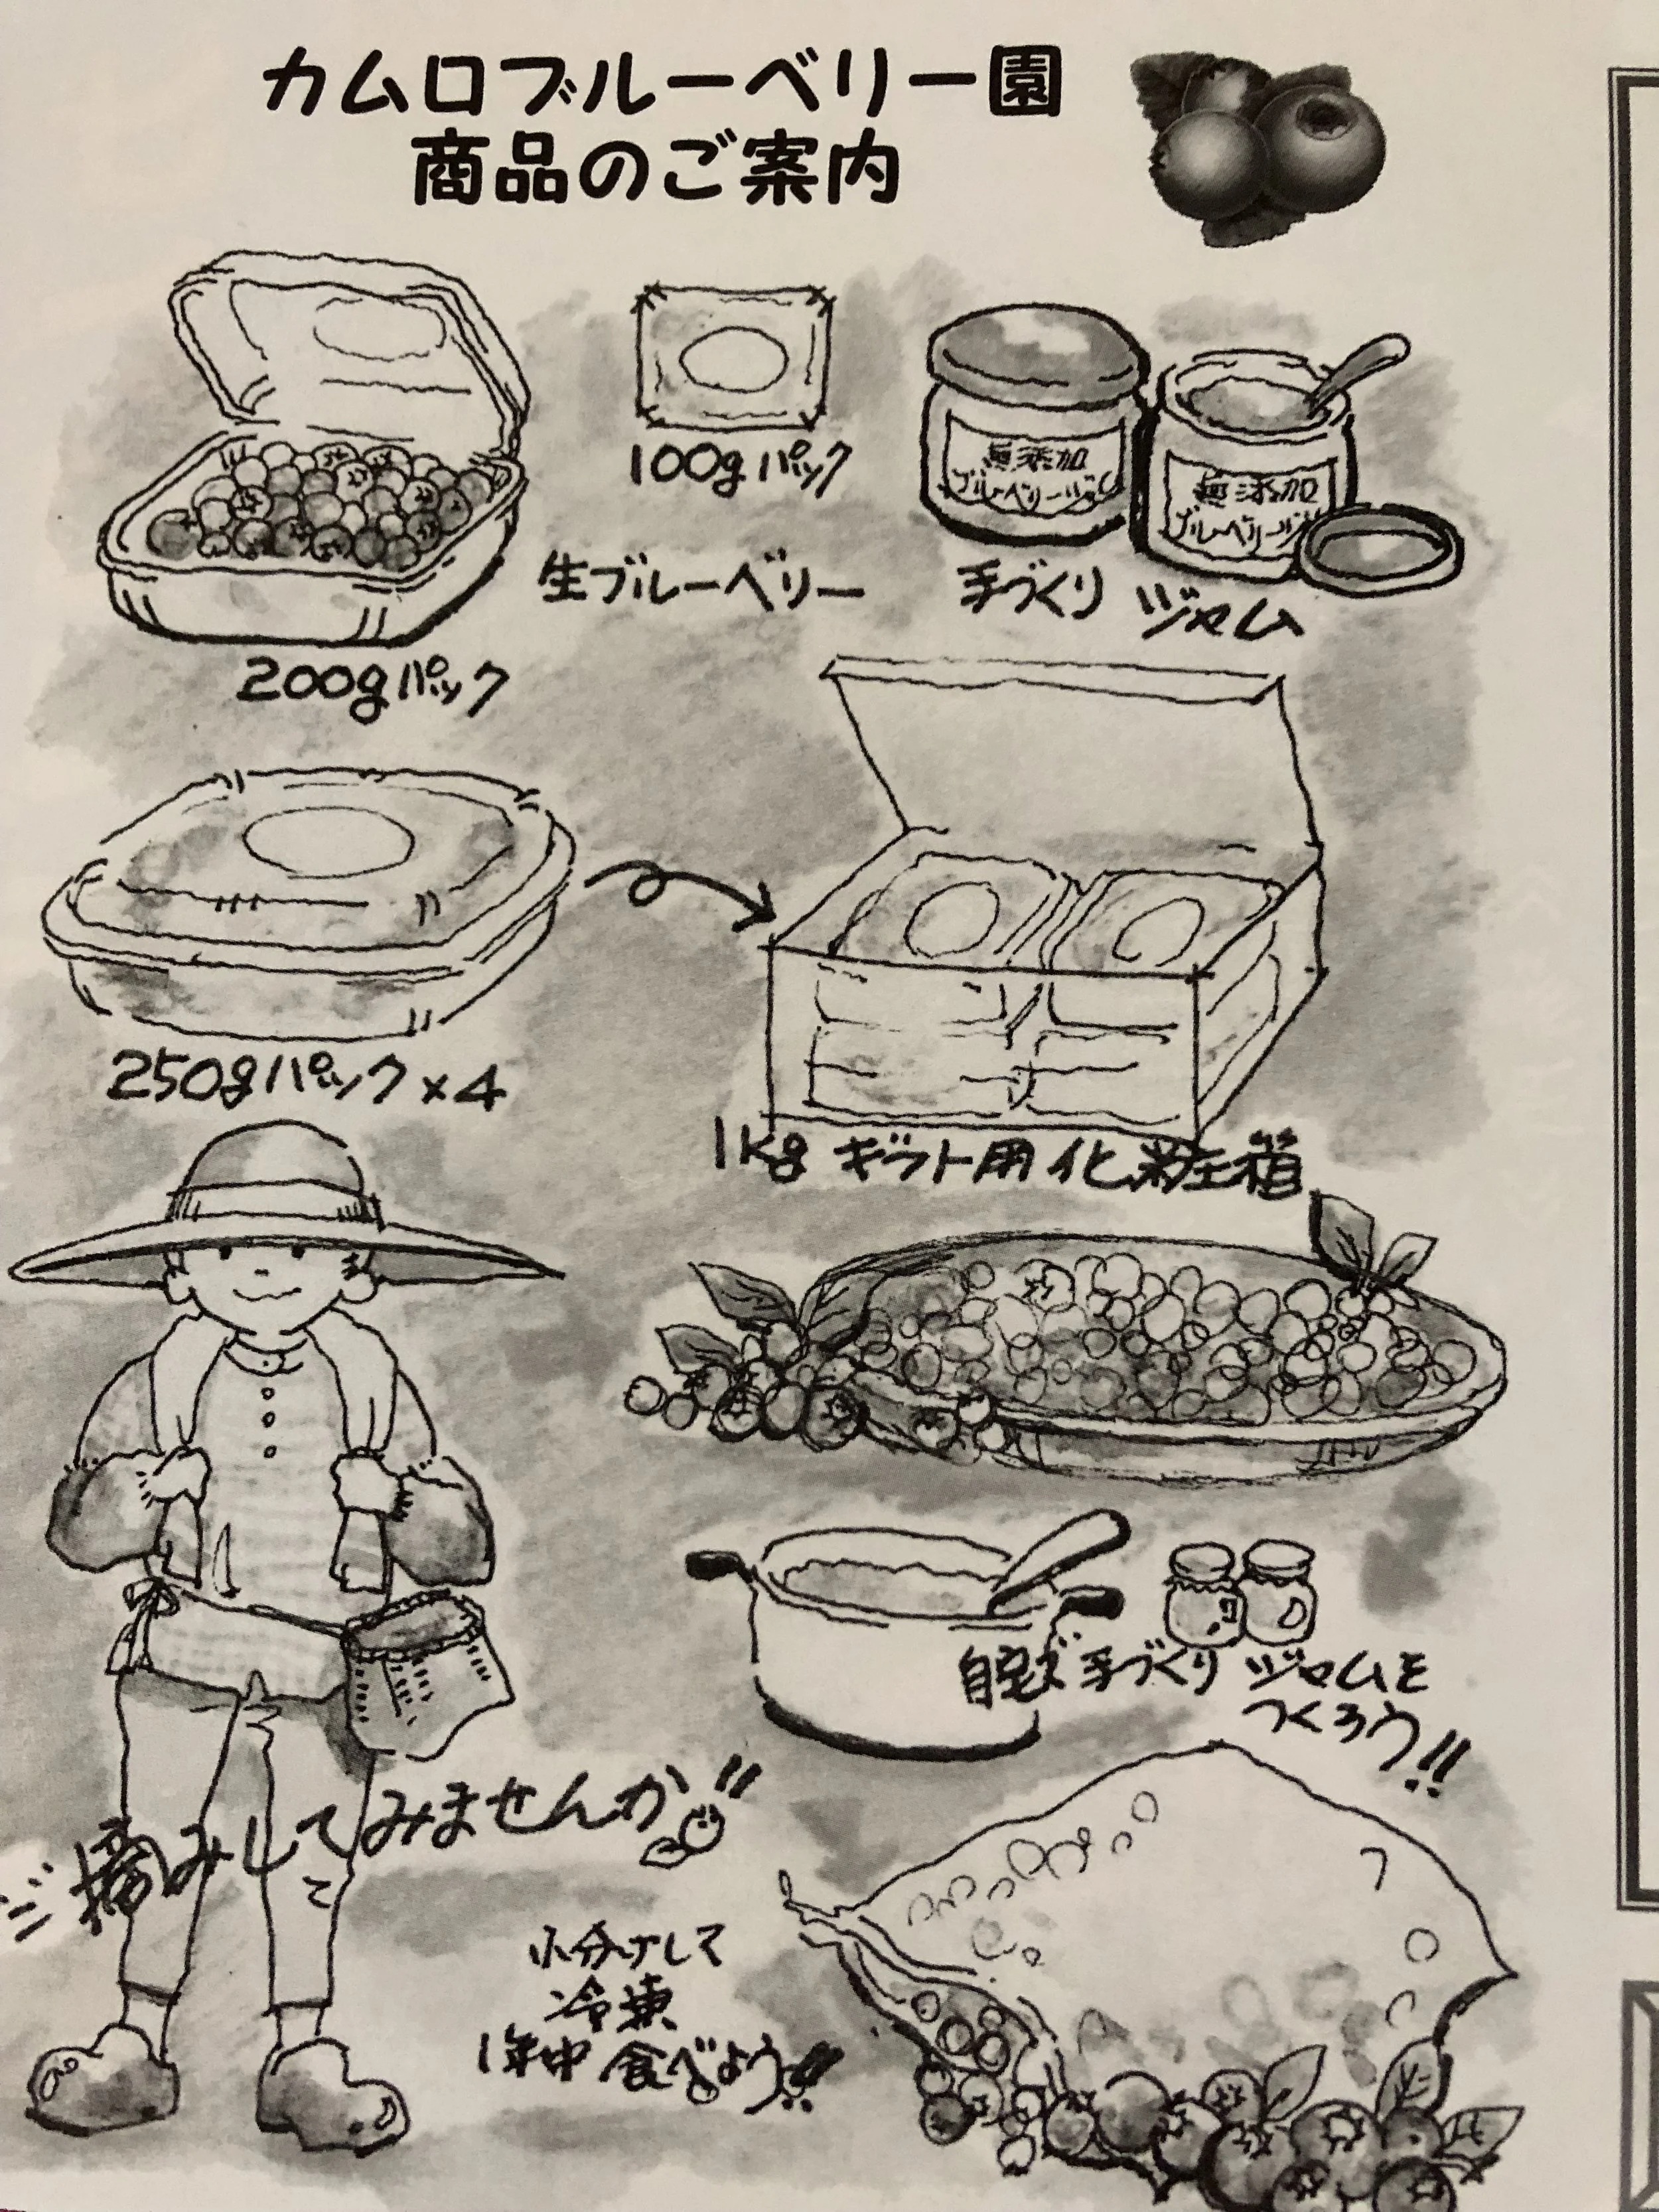 カムロブルーベリー園
商品のご案内
100gパック
無添加
ブルーベリージャム
無添加
ブルーベリージ
生ブルーベリー
手づくり ジャム
200gパック
250gパック×4
1Kg ギフト用化粧箱
自宅で手づくり ジャムを
つくろう!!
摘みしてみませんか!!
小分けして
冷凍
1年中 食べよう!!